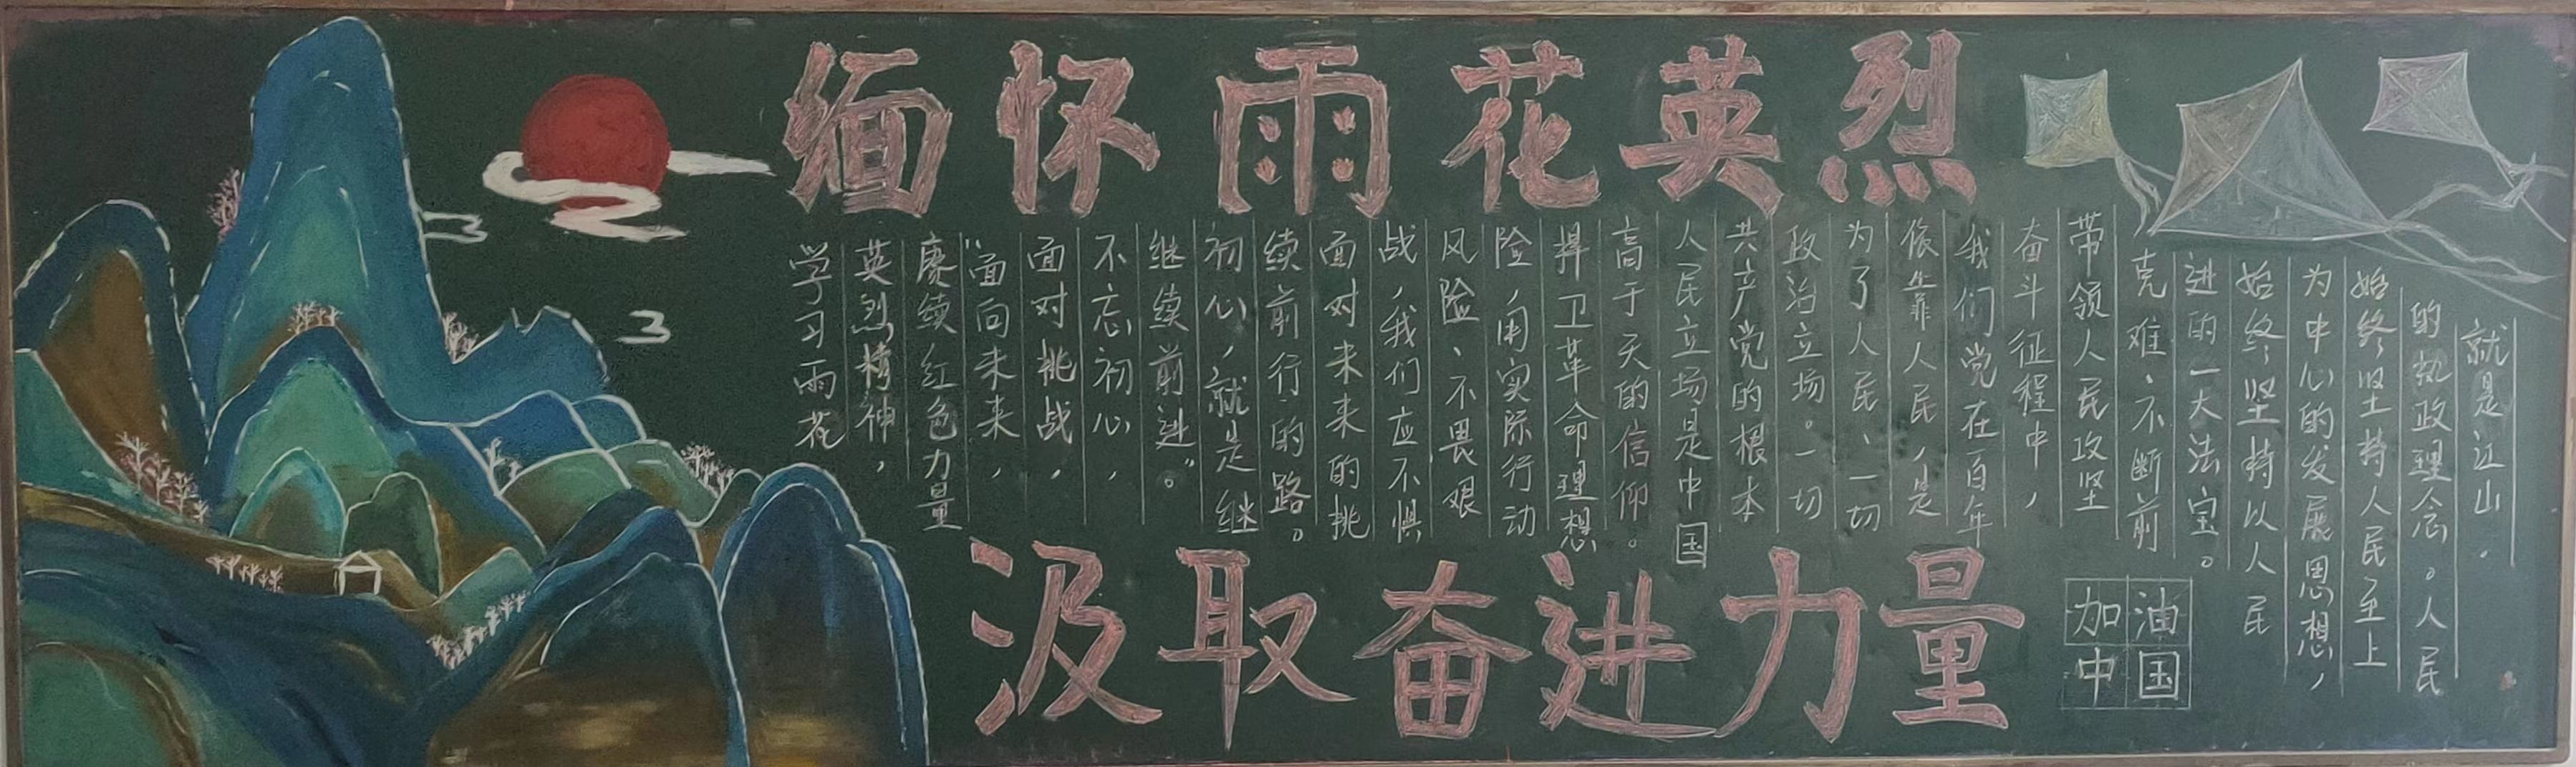 缅怀雨花英烈
学习雨花
英烈精神，
赓续红色力量
“面向未来，
面对挑战，
不忘初心，
继续前进。”
初心，就是继
续前行的路。
面对未来的挑
战，我们应不惧
风险、不畏艰
险，用实际行动
捍卫革命理想
高于天的信仰。
人民立场是中国
共产党的根本
政治立场。一切
为了人民、一切
依靠人民，是
我们党在百年
奋斗征程中，
带领人民攻坚
克难、不断前
进的一大法宝。
始终坚持以人民
为中心的发展思想，
始终坚持人民至上
的执政理念。人民
就是江山。
汲取奋进力量
加油
中国